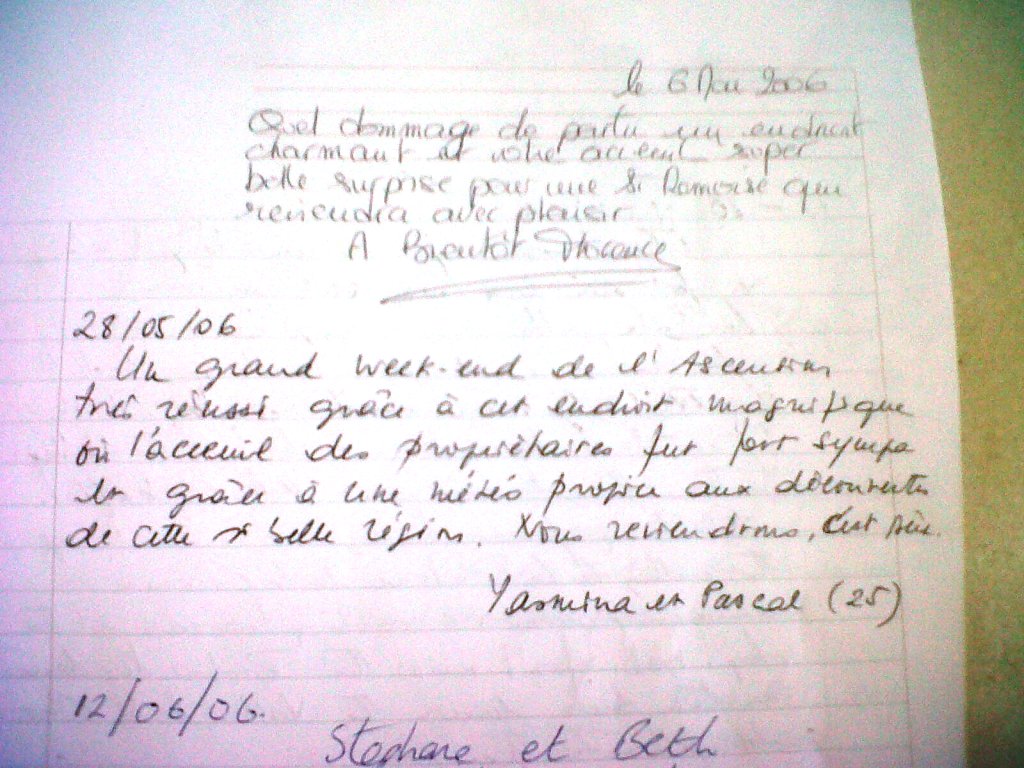 le 6 Mai 2006
Quel dommage de partir un endroit
charmant et votre accueil super
belle surprise pour une St Ramoise qui
reviendra avec plaisir
A Bientôt Florence
28/05/06
Un grand week-end de l'Ascension
très réussi grâce à cet endroit magnifique
où l'acceuil des propriétaires fut fort sympa
et grâce à une météo propice aux découvertes
de cette si belle région. Nous reviendrons, c'est sûr.
Yasmina et Pascal (25)
12/06/06.
Stephane et Beth